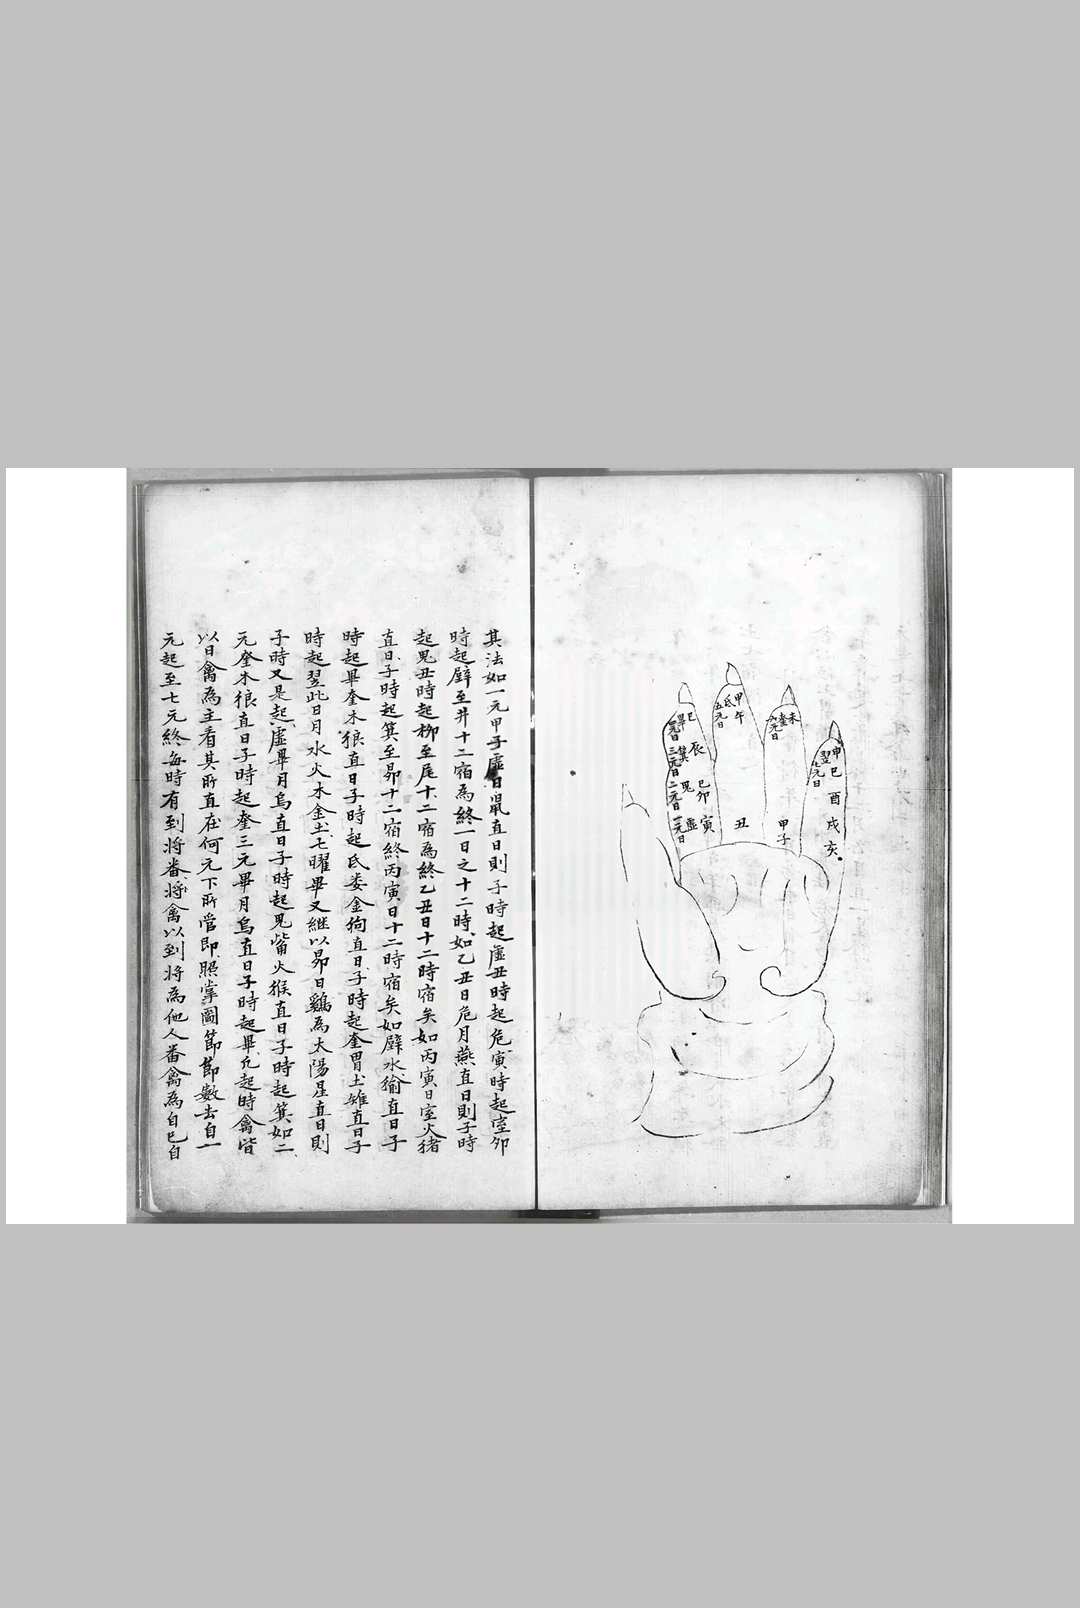 巳
畢
四元日
辰
箕
三元日
巳
卯
鬼
二元日
寅
虛
一元日
甲午
氐
五元日
丑
未
奎
六元日
甲子
申
巳
翌
七元日
酉
戌
亥
其法如一元甲子虛日鼠直日則子時起虛丑時起危寅時起室卯
時起壁至井十二宿為終一日之十二時如乙丑日危月燕直日則子時
起鬼丑時起柳至尾十二宿為終乙丑日十二時宿矣如丙寅日室火猪
直日子時起箕至昴十二宿終丙寅日十二時宿矣如壁水㺄直日子
時起畢奎木狼直日子時起氐娄金狗直日子時起奎胃土雉直日子
時起翌此日月水火木金土七曜畢又継以昴日鷄為太陽星直日則
子時又是起虛畢月烏直日子時起鬼觜火猴直日子時起箕如二
元奎木狼直日子時起奎三元畢月烏直日子時起畢凢起時禽皆
以日禽為主看其所直在何元下所管即照掌圖節節數去自一
元起至七元終每時有到将番将禽以到将為他人番禽為自已自